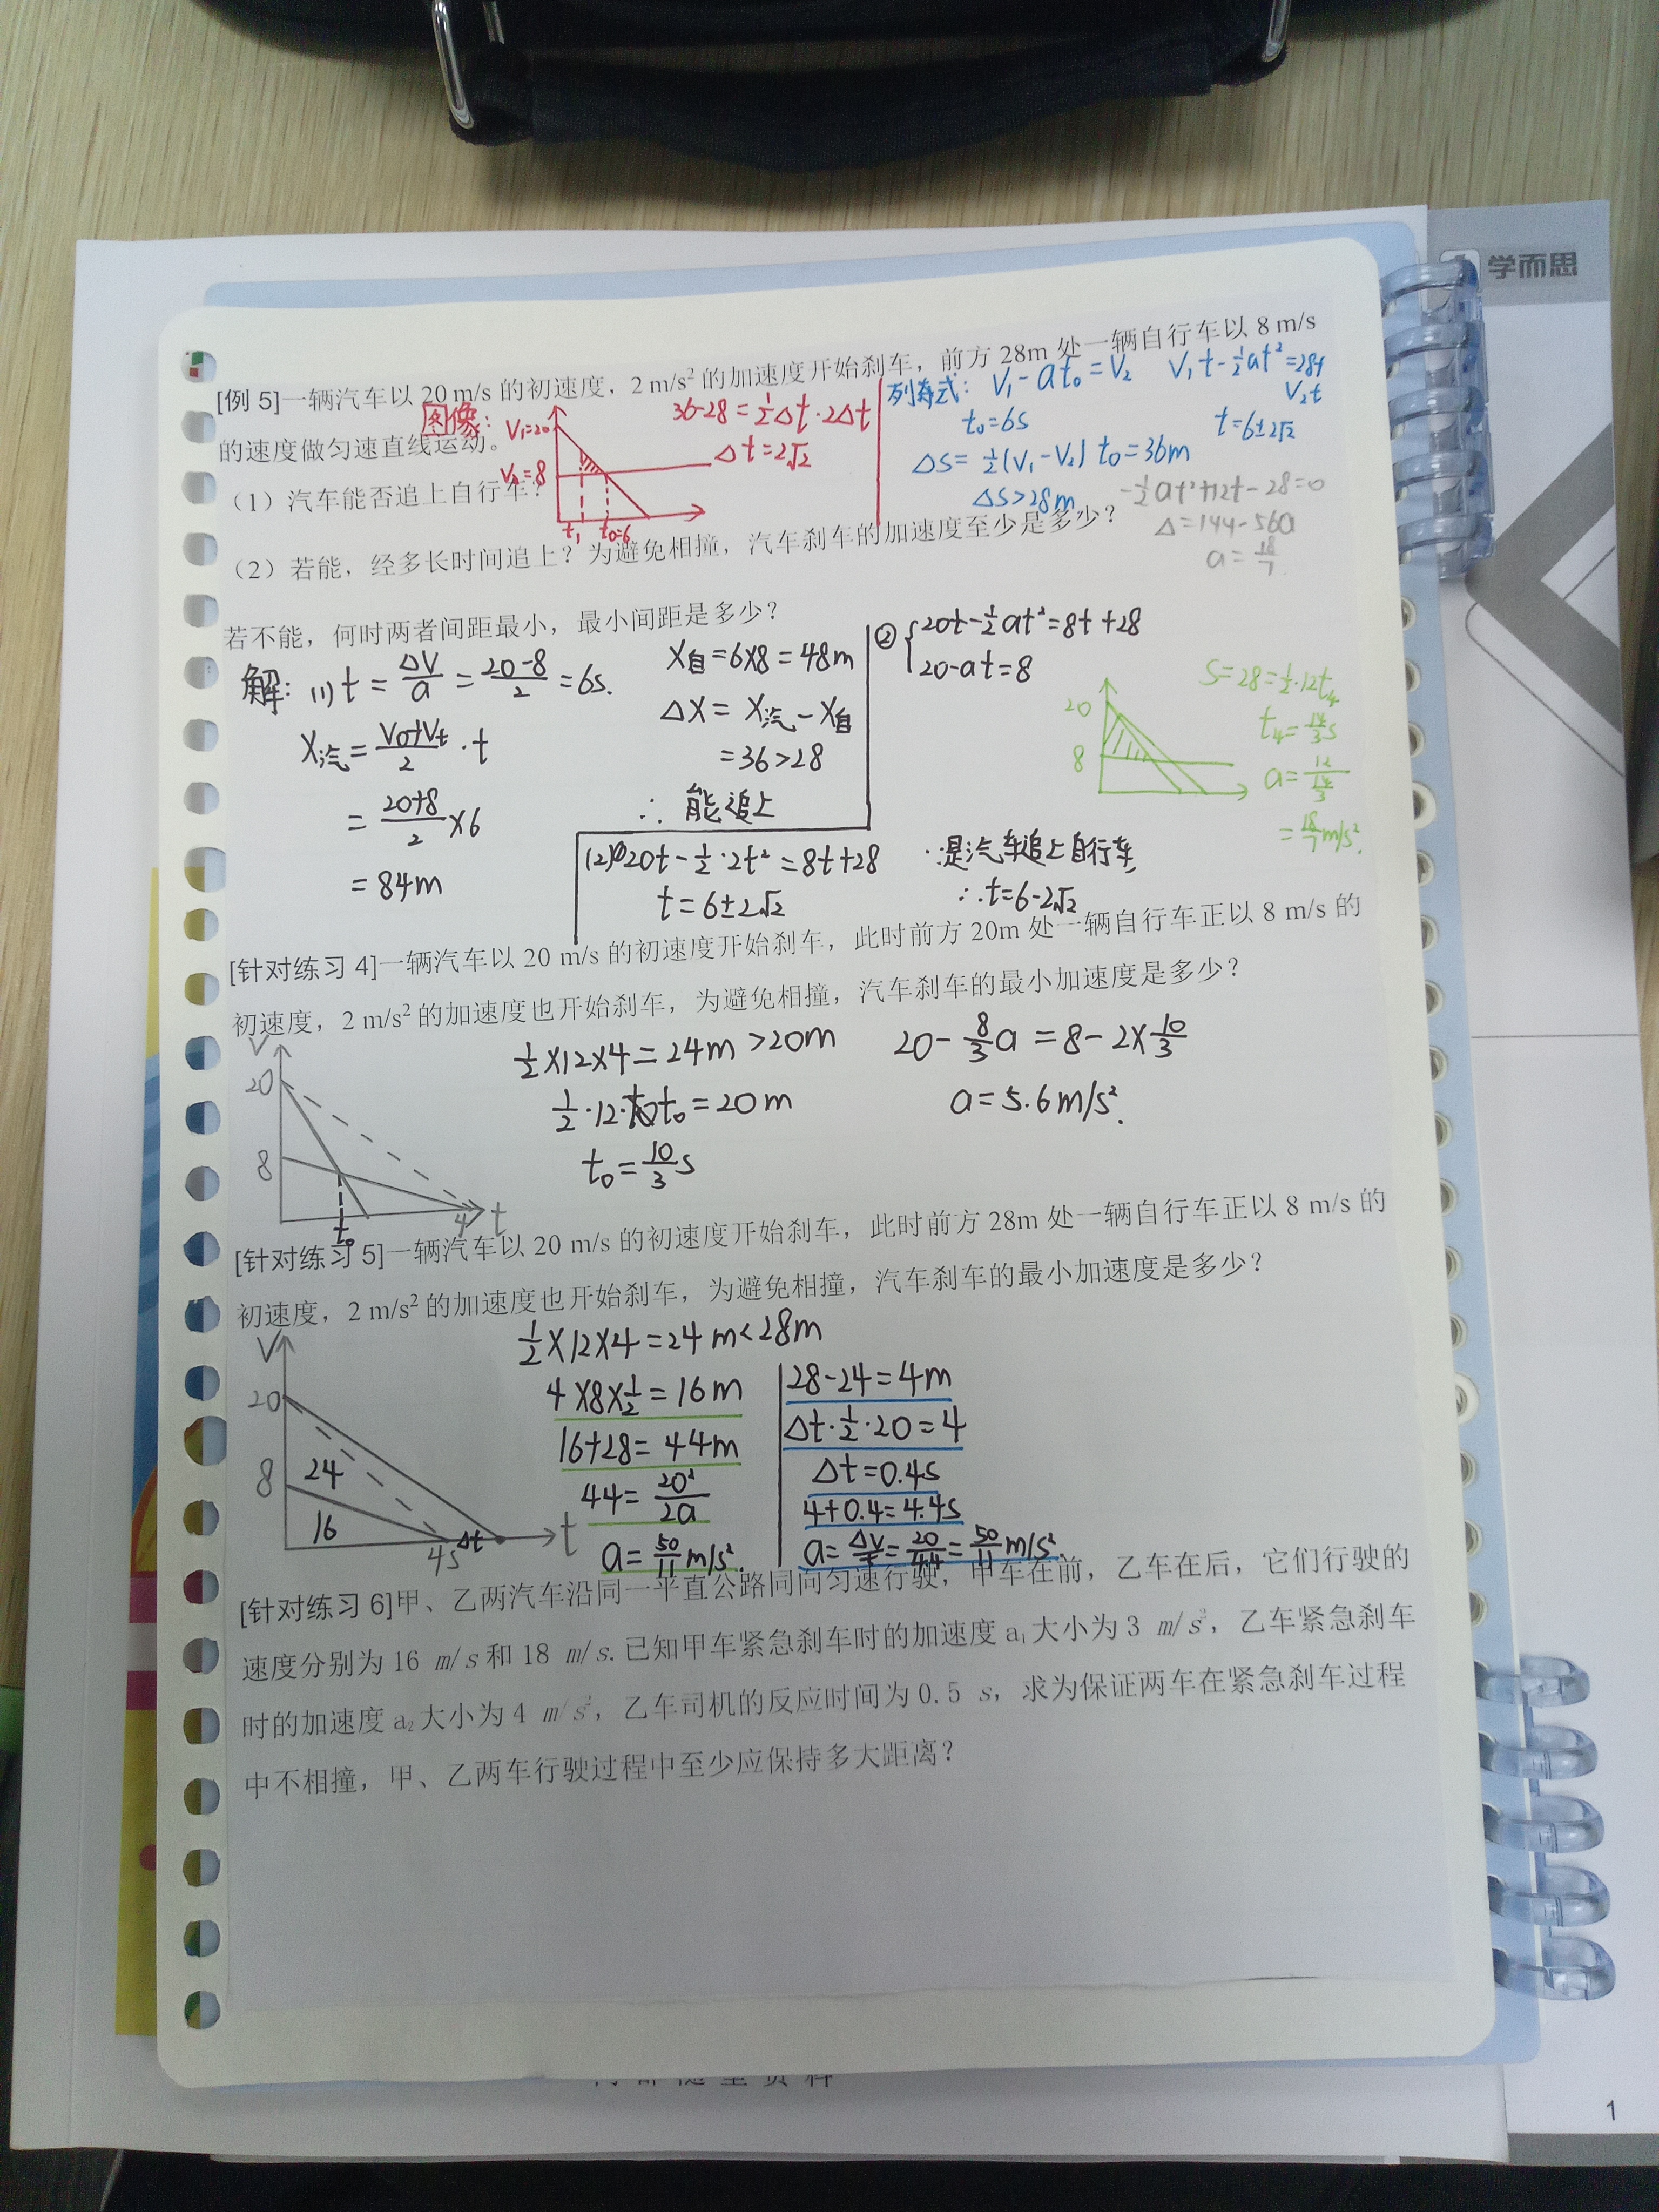 学而思
[例 5]一辆汽车以 20 m/s 的初速度，2 m/s² 的加速度开始刹车，前方 28m 处一辆自行车以 8 m/s
的速度做匀速直线运动。
图像：
V₁=20
V₂=8
t₁ t₀=6
36-28=½Δt·2Δt
Δt=2√2
列寿式：V₁-at₀=V₂
t₀=6s
ΔS=½(V₁-V₂)t₀=36m
ΔS>28m
V₁t-½at²=28+
V₂t
t=6±2√2
-½at²+12t-28=0
Δ=144-56a
a=18/7
（1）汽车能否追上自行车？
（2）若能，经多长时间追上？为避免相撞，汽车刹车的加速度至少是多少？
若不能，何时两者间距最小，最小间距是多少？
解：(1) t=ΔV/a=(20-8)/2=6s.
X汽=(V₀+Vt)/2·t
=(20+8)/2×6
=84m
X自=6×8=48m
ΔX=X汽-X自
=36>28
∴能追上
(2)①20t-½·2t²=8t+28
t=6±2√2
∵是汽车追上自行车
∴t=6-2√2
② {20t-½at²=8t+28
20-at=8
20
8
S=28=½·12t₄
t₄=14/3s
a=12/(14/3)
=18/7m/s².
[针对练习 4]一辆汽车以 20 m/s 的初速度开始刹车，此时前方 20m 处一辆自行车正以 8 m/s 的
初速度，2 m/s² 的加速度也开始刹车，为避免相撞，汽车刹车的最小加速度是多少？
V
20
8
t₀
4
t
½×12×4=24m>20m
½·12·t₀=20m
t₀=10/3s
20-8/3a=8-2×10/3
a=5.6m/s².
[针对练习 5]一辆汽车以 20 m/s 的初速度开始刹车，此时前方 28m 处一辆自行车正以 8 m/s 的
初速度，2 m/s² 的加速度也开始刹车，为避免相撞，汽车刹车的最小加速度是多少？
V
20
8
24
16
4s
Δt
t
½×12×4=24m<28m
4×8×½=16m
16+28=44m
44=20²/2a
a=50/11m/s².
28-24=4m
Δt·½·20=4
Δt=0.4s
4+0.4=4.4s
a=ΔV/t=20/4.4=50/11m/s².
[针对练习 6]甲、乙两汽车沿同一平直公路同向匀速行驶，甲车在前，乙车在后，它们行驶的
速度分别为 16 m/s 和 18 m/s.已知甲车紧急刹车时的加速度 a₁ 大小为 3 m/s²，乙车紧急刹车
时的加速度 a₂ 大小为 4 m/s²，乙车司机的反应时间为 0.5 s，求为保证两车在紧急刹车过程
中不相撞，甲、乙两车行驶过程中至少应保持多大距离？
1